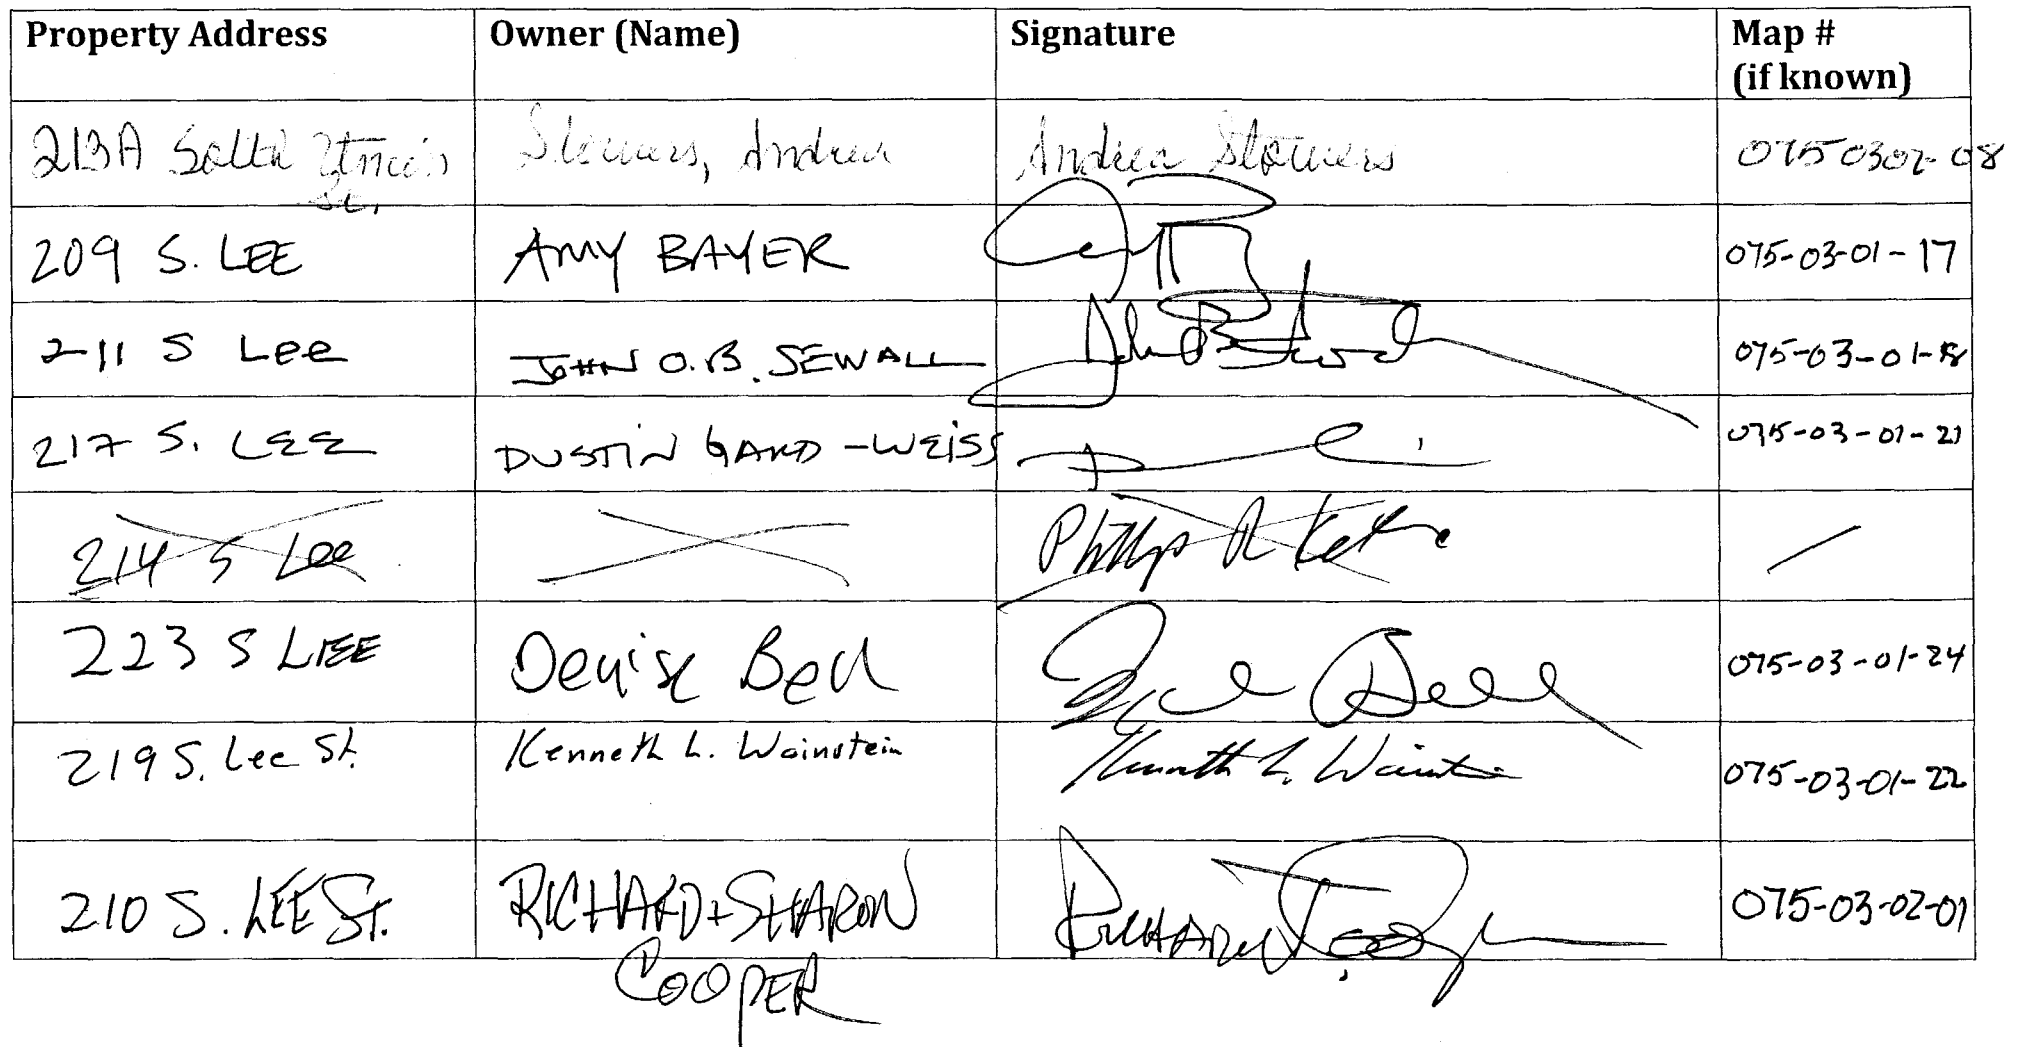 Property Address Owner (Name) Signature Map #
(if known)
213A South St. Stowers, Andrea Andrea Stowers 0750302-08
209 S. LEE AMY BAYER 075-03-01-17
211 S Lee JOHN O.B. SEWALL John O B Sewall 075-03-01-18
217 S. LEE DUSTIN GARD-WEISS 075-03-01-21
214 S Lee Phillip R
223 S LEE Denise Bell Bell 075-03-01-24
219 S. Lee St. Kenneth L. Wainstein Kenneth L. Wainstein 075-03-01-22
210 S. LEE St. RICHARD + SHARON RICHARD 075-03-02-01
COOPER